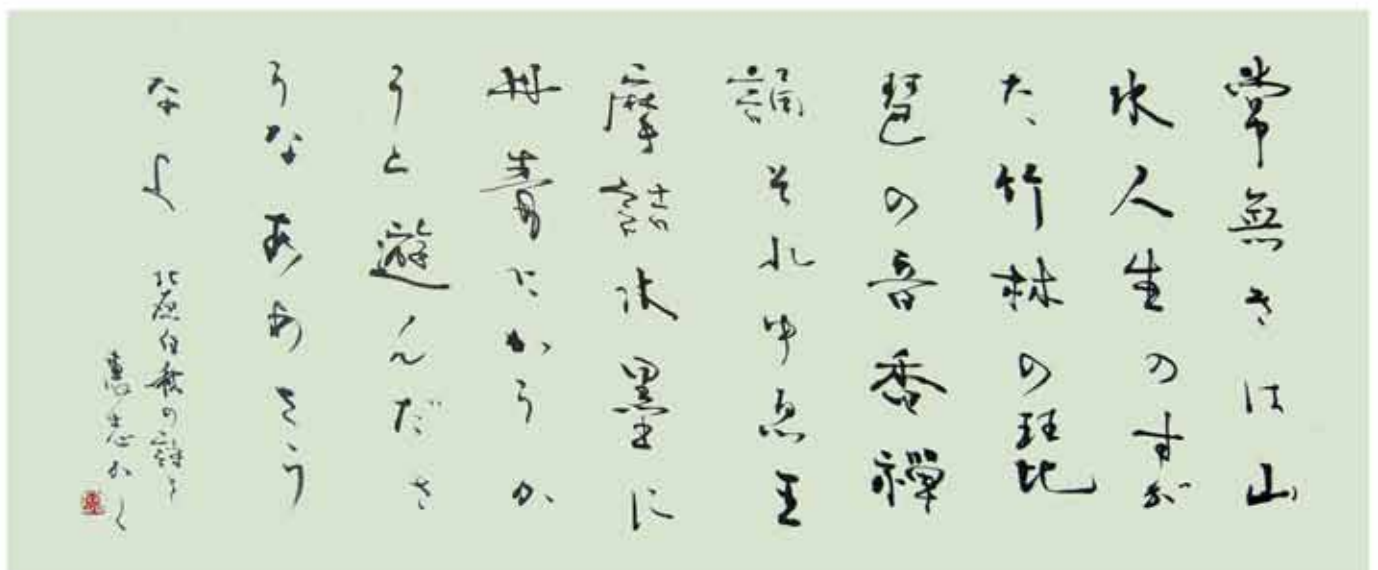 常無きは山
水人生のすが
た、竹林の琵
琶の音香禅
誦それゆゑ王
摩詰水墨に
丹青にかうか
うと遊んださ
うなああさう
なよ
北原白秋の詩より
かく